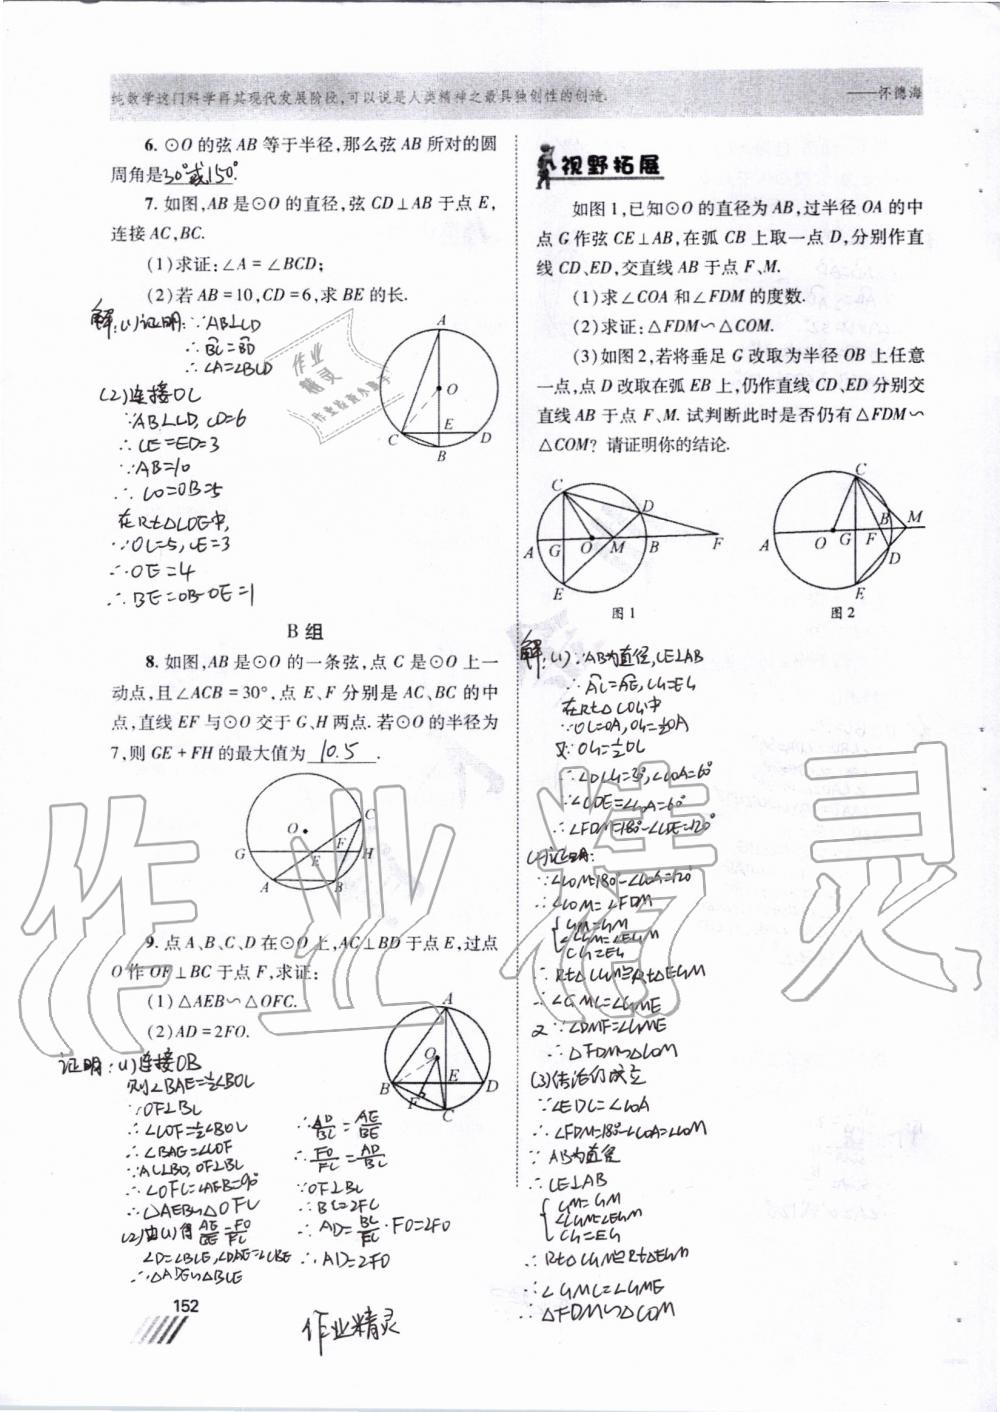 纯数学这门科学再其现代发展阶段,可以说是人类精神之最具独创性的创造.
——怀德海
6. ⊙O 的弦 AB 等于半径,那么弦 AB 所对的圆
周角是30°或150°.
7. 如图,AB 是⊙O 的直径,弦 CD⊥AB 于点 E,
连接 AC,BC.
(1)求证:∠A=∠BCD;
(2)若 AB=10,CD=6,求 BE 的长.
解:(1)证明:∵AB⊥CD
∴BC=BD
∴∠A=∠BCD
(2)连接OC
∵AB⊥CD,CD=6
∴CE=ED=3
∵AB=10
∴CO=OB=5
在Rt△COE中,
∵OC=5,CE=3
∴OE=4
∴BE=OB-OE=1
A
O
C
E
D
B
作业
精灵
B 组
8. 如图,AB 是⊙O 的一条弦,点 C 是⊙O 上一
动点,且∠ACB=30°,点 E、F 分别是 AC、BC 的中
点,直线 EF 与⊙O 交于 G、H 两点.若⊙O 的半径为
7,则 GE+FH 的最大值为 10.5 .
O
C
G
E
F
H
A
B
9. 点 A、B、C、D 在⊙O 上,AC⊥BD 于点 E,过点
O 作 OF⊥BC 于点 F,求证:
(1)△AEB∽△OFC.
(2)AD=2FO.
A
O
B
E
D
F
C
证明:(1)连接OB
则∠BAE=½∠BOC
∵OF⊥BC
∴∠COF=½∠BOC
∴∠BAE=∠COF
∵AC⊥BD,OF⊥BC
∴∠OFC=∠AEB=90°
∴△AEB∽△OFC
(2)由(1)得AE/BE=FO/FC
∠D=∠BCE,∠DAE=∠CBE
∴△ADE∽△BCE
∴AD/BC=AE/BE
∴FO/FC=AD/BC
∵OF⊥BC
∴BC=2FC
∴AD=BC/FC·FO=2FO
∴AD=2FO
152
作业精灵
视野拓展
如图 1,已知⊙O 的直径为 AB,过半径 OA 的中
点 G 作弦 CE⊥AB,在弧 CB 上取一点 D,分别作直
线 CD、ED,交直线 AB 于点 F、M.
(1)求∠COA 和∠FDM 的度数.
(2)求证:△FDM∽△COM.
(3)如图 2,若将垂足 G 改取为半径 OB 上任意
一点,点 D 改取在弧 EB 上,仍作直线 CD、ED 分别交
直线 AB 于点 F、M. 试判断此时是否仍有△FDM∽
△COM? 请证明你的结论.
C
D
A G O M B F
E
图 1
C
A O G F B M
D
E
图 2
解:(1)∵AB为直径,CE⊥AB
∴AC=AE,CG=EG
在Rt△COG中
∵OC=OA,OG=½OA
又∵OG=½OC
∴∠OCG=30°,∠COA=60°
∴∠CDE=∠COA=60°
∴∠FDM=180°-∠CDE=120°
(2)证明:
∵∠COM=180°-∠COA=120°
∴∠COM=∠FDM
GM=GM
∠CGM=∠EGM
CG=EG
∴Rt△CGM≌Rt△EGM
∴∠GMC=∠GME
又∵∠DMF=∠GME
∴△FDM∽△COM
(3)结论仍成立
∵∠EDC=∠COA
∴∠FDM=180°-∠COA=∠COM
∵AB为直径
∴CE⊥AB
GM=GM
∠CGM=∠EGM
CG=EG
∴Rt△CGM≌Rt△EGM
∴∠GMC=∠GME
∴△FDM∽△COM
作业精灵